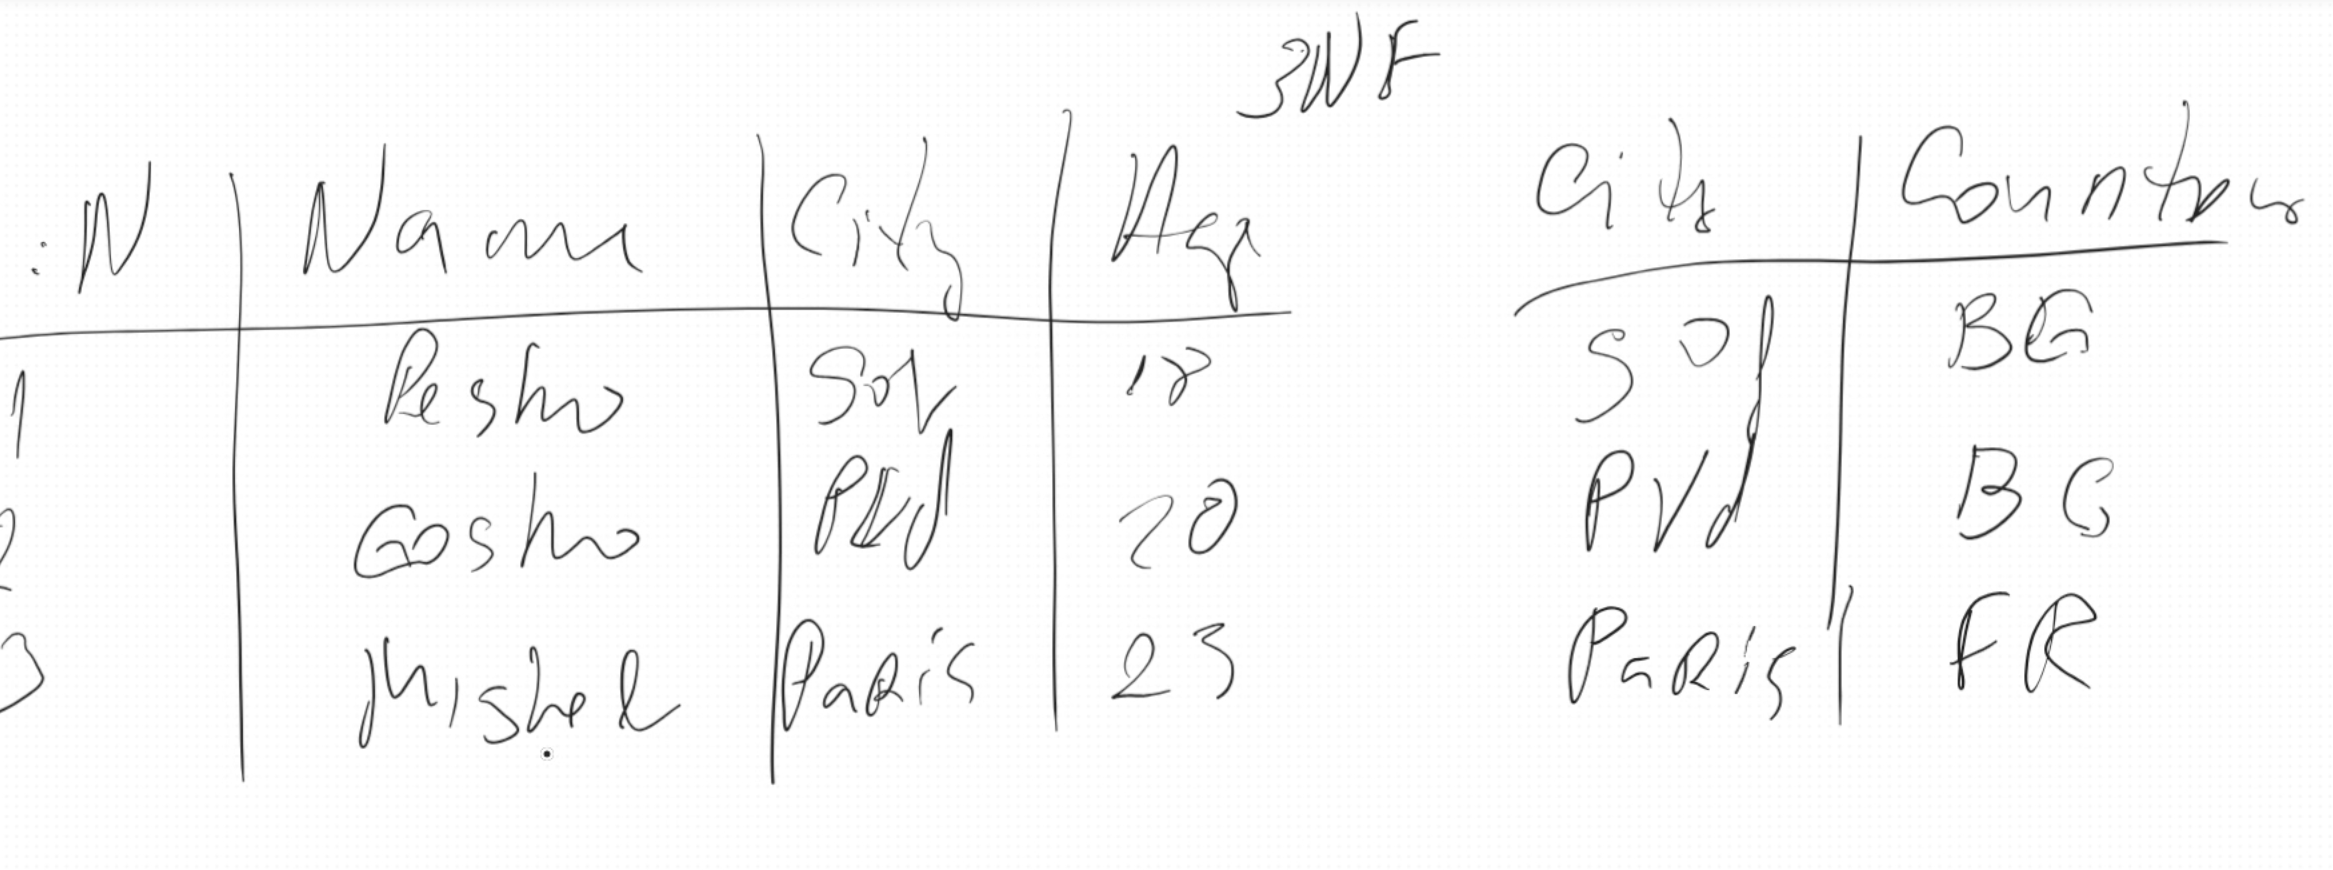 3NF
:N Name City Age
1 Pesho Sof 18
2 Gosho Pvd 20
3 Mishel Paris 23
City Country
Sof BG
Pvd BG
Paris FR